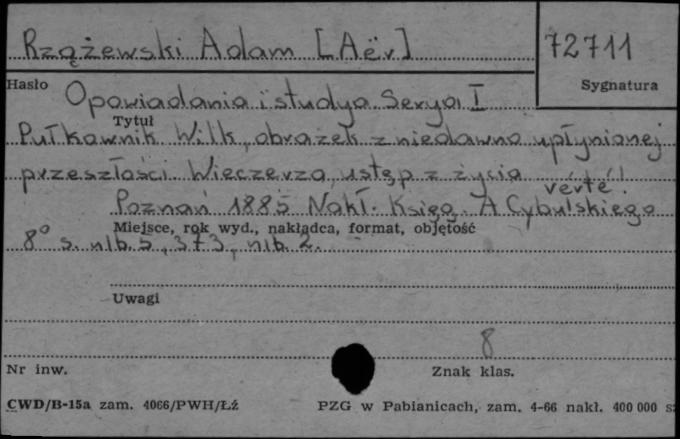 Rzążewski Adam [Aër]
72711
Hasło
Sygnatura
Opowiadania i studya. Serya I
Tytuł
Pułkownik Wilk, obrazek z niedawno upłynionej
przeszłości. Wieczerza, ustęp z życia
vérté!
Poznań 1885 Nakł. Księg. A Cybulskiego
Miejsce, rok wyd., nakładca, format, objętość
8° s. nlb. 5, 373, nlb 2.
Uwagi
8
Nr inw.
Znak klas.
CWD/B-15a zam. 4066/PWH/Łź
PZG w Pabianicach, zam. 4-66 nakł. 400 000 sz